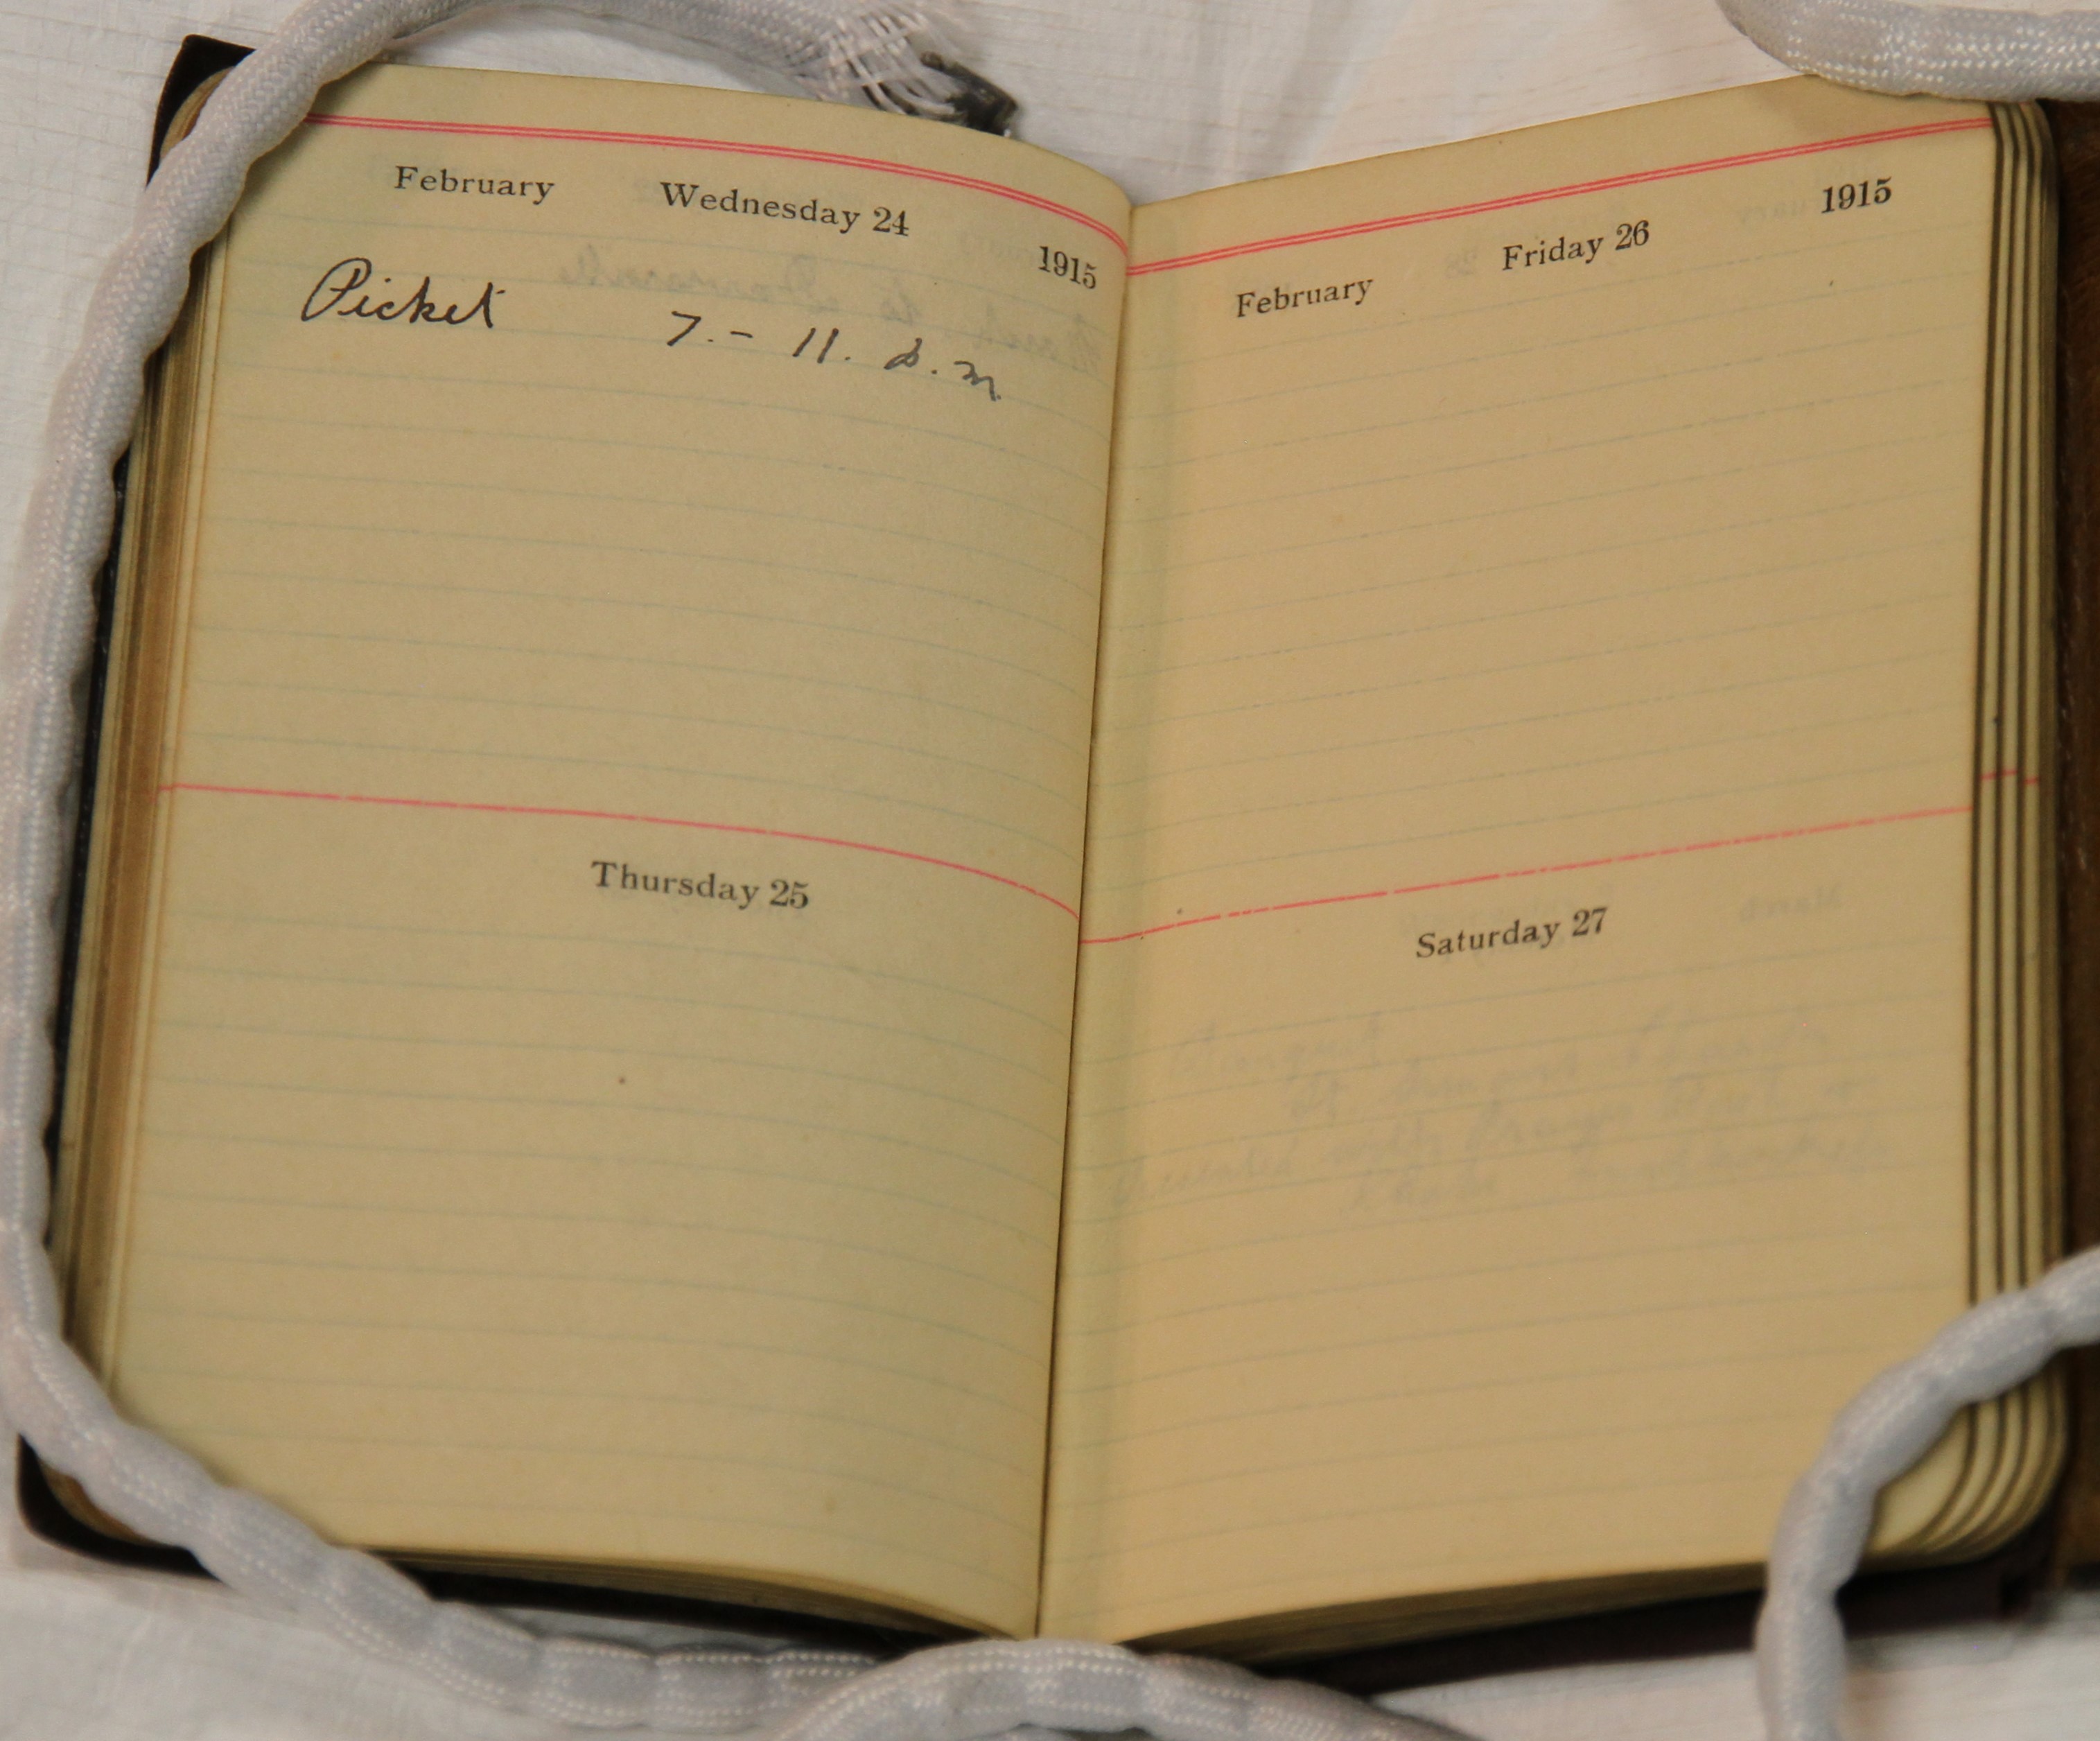 February Wednesday 24 1915
Picket 7.- 11. p.m.
Thursday 25
February Friday 26 1915
Saturday 27